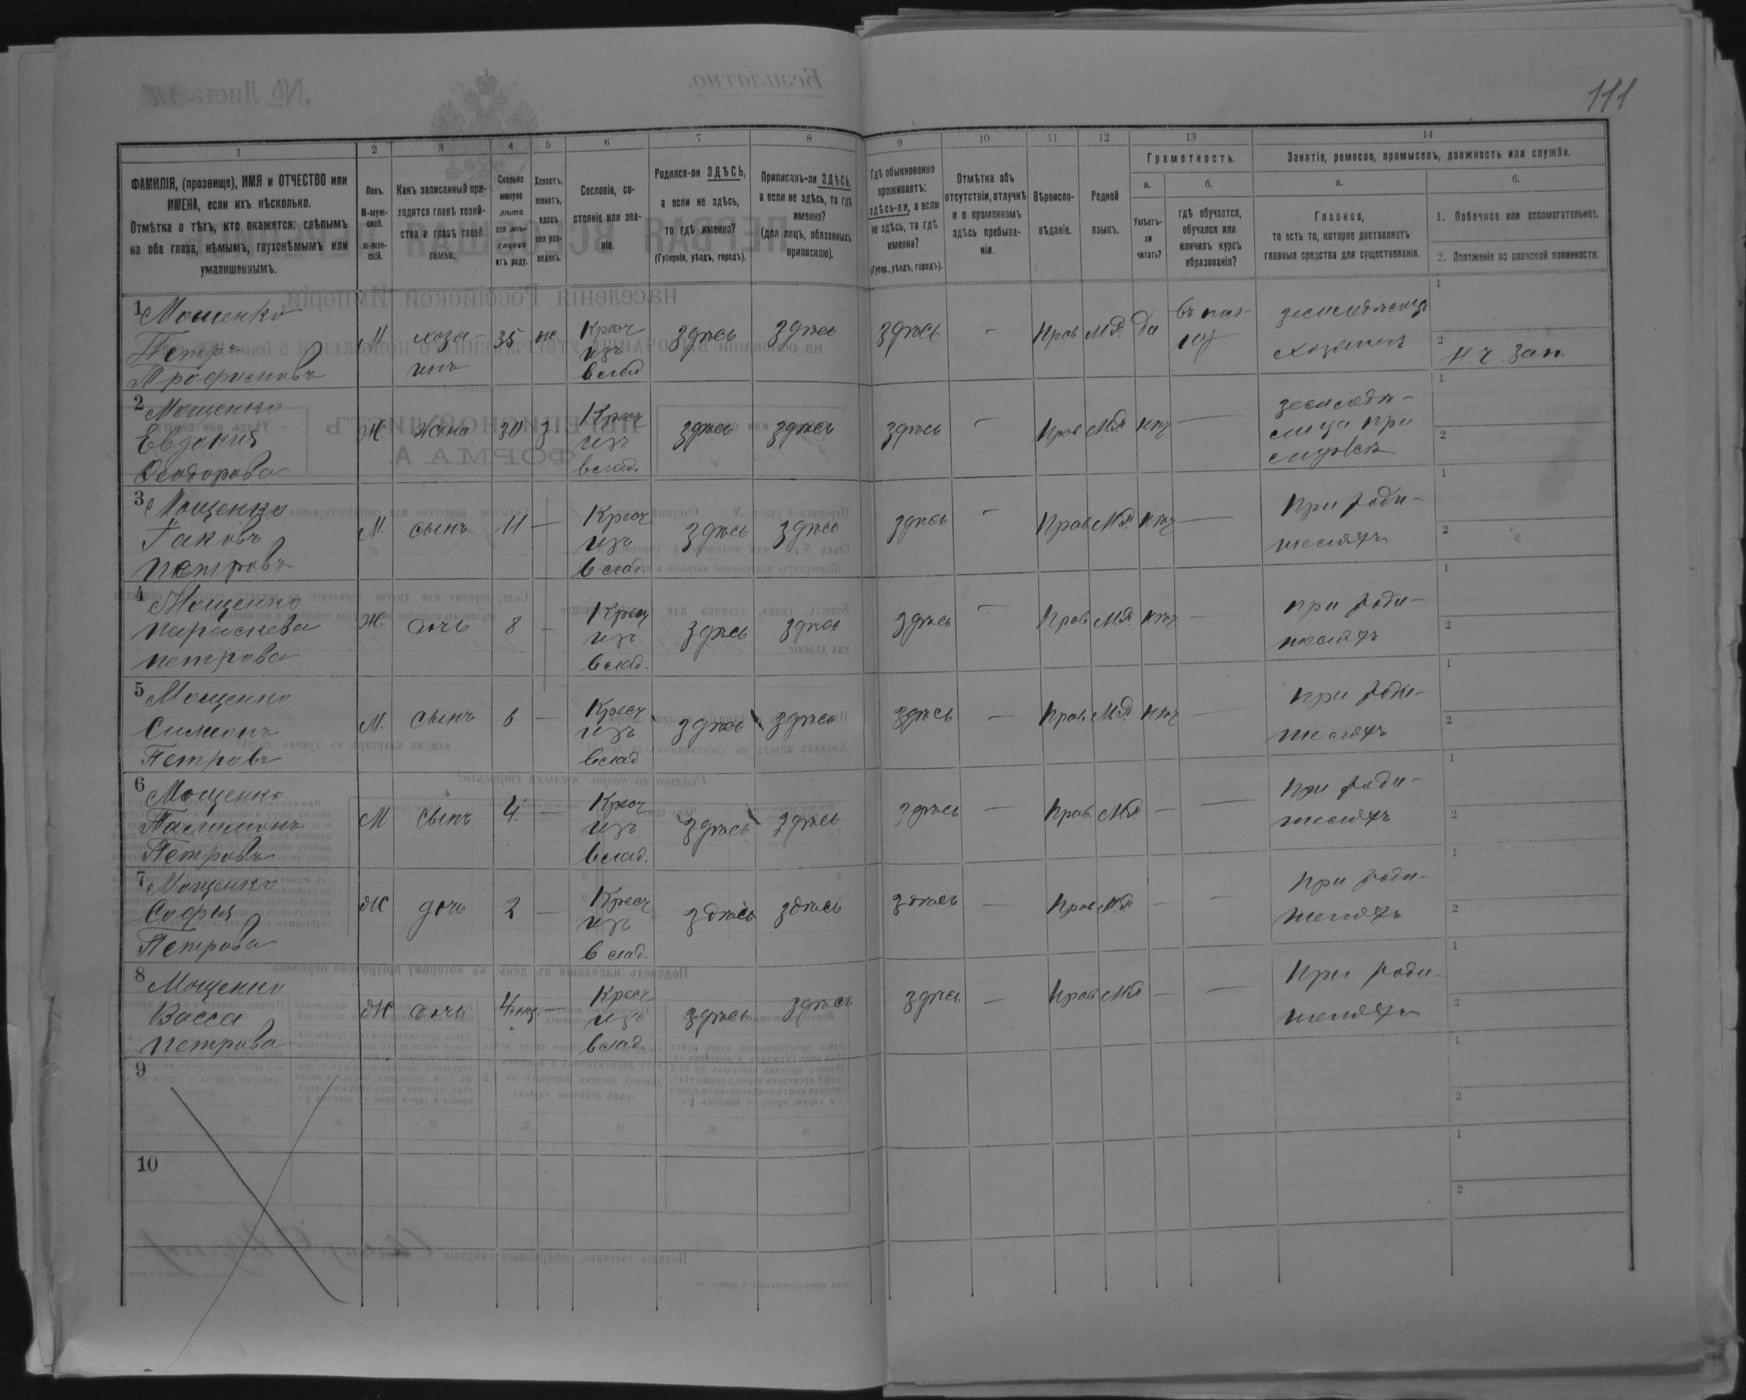 111
1 2 3 4 5 6 7 8 9 10 11 12 13 14
ФАМИЛІЯ, (прозвище), ИМЯ и ОТЧЕСТВО или
ИМЕНА, если ихъ нѣсколько.
Отмѣтка о тѣхъ, кто окажется: слѣпымъ
на оба глаза, нѣмымъ, глухонѣмымъ или
умалишеннымъ.
Полъ.
М-муж-
ской.
Ж-жен-
скій.
Какъ записанный при-
ходится главѣ хозяй-
ства и главѣ своей
семьи.
Сколько
минуло
лѣтъ
или мѣ-
сяцевъ
отъ роду.
Холостъ,
женатъ,
вдовъ
или раз-
веденъ.
Сословіе, со-
стояніе или зва-
ніе.
Родился-ли ЗДѢСЬ,
а если не здѣсь,
то гдѣ именно?
(Губернія, уѣздъ, городъ).
Приписанъ-ли ЗДѢСЬ,
а если не здѣсь, то гдѣ
именно?
(для лицъ, обязанныхъ
припискою).
Гдѣ обыкновенно
проживаетъ:
здѣсь-ли, а если
не здѣсь, то гдѣ
именно?
(Губер., уѣздъ, городъ).
Отмѣтка объ
отсутствіи, отлучкѣ
и о временномъ
здѣсь пребыва-
ніи.
Вѣроиспо-
вѣданіе.
Родной
языкъ.
Грамотность.
а.
Умѣетъ-
ли
читать?
б.
гдѣ обучается,
обучался или
кончилъ курсъ
образованія?
Занятіе, ремесло, промыселъ, должность или служба.
а.
Главное,
то есть то, которое доставляетъ
главныя средства для существованія.
б.
1. Побочное или вспомогательное.
2. Положеніе по воинской повинности.
1 Мощенко
Петръ
Трофимовъ
М хозя-
инъ
35 ж
Крест
изъ
влад
здѣсь здѣсь здѣсь - Прав М.Я. да
земледѣлецъ
хозяинъ
1
2
2 Мощенко
Евдокия
Ѳеодорова
Ж жена 30 з
Крест
изъ
влад.
здѣсь здѣсь здѣсь - Прав М.Я. нѣт -
при
1
2
3 Мощенко
Іаковъ
Петровъ
М. сынъ 11 -
Крест
изъ
влад.
здѣсь здѣсь здѣсь - Прав М.Я. нѣт -
При роди-
теляхъ
1
2
4 Мощенко
Параскева
Петрова
Ж. дочь 8 -
Крест
изъ
влад.
здѣсь здѣсь здѣсь - Прав М.Я. нѣт -
при роди-
теляхъ
1
2
5 Мощенко
Симеонъ
Петровъ
М. сынъ 6 -
Крест
изъ
влад
здѣсь здѣсь здѣсь - Прав М.Я. нѣт -
при роди-
теляхъ
1
2
6 Мощенко
Петровъ
М сынъ 4. -
Крест
изъ
влад.
здѣсь здѣсь здѣсь - Прав. М.Я. - -
При роди-
теляхъ
1
2
7 Мощенко
София
Петрова
Ж дочь 2 -
Крест
изъ
влад.
здѣсь здѣсь здѣсь - Прав М.Я. - -
При роди-
теляхъ
1
2
8 Мощенко
Васса
Петрова
Ж дочь 4 мѣс. -
Крест
изъ
влад
здѣсь здѣсь здѣсь - Прав М.Я. - -
При роди-
теляхъ
1
2
9
1
2
10
1
2